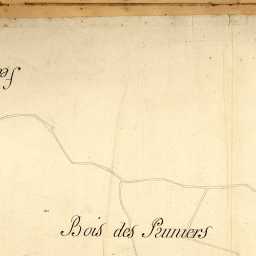 Bois des Pruniers